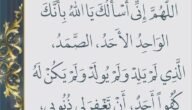 اللَّهُمَّ إِنِّي أَسْأَلُكَ يَا اللَّهُ بِأَنَّكَ
الوَاحِدُ الأَحَدُ، الصَّمَدُ،
الَّذِي لَمْ يَلِدْ وَلَمْ يُولَدْ وَلَمْ يَكُنْ لَهُ
كُفُوًا أَحَدٌ، أَنْ تَغْفِرَ لِي ذُنُوبِي،